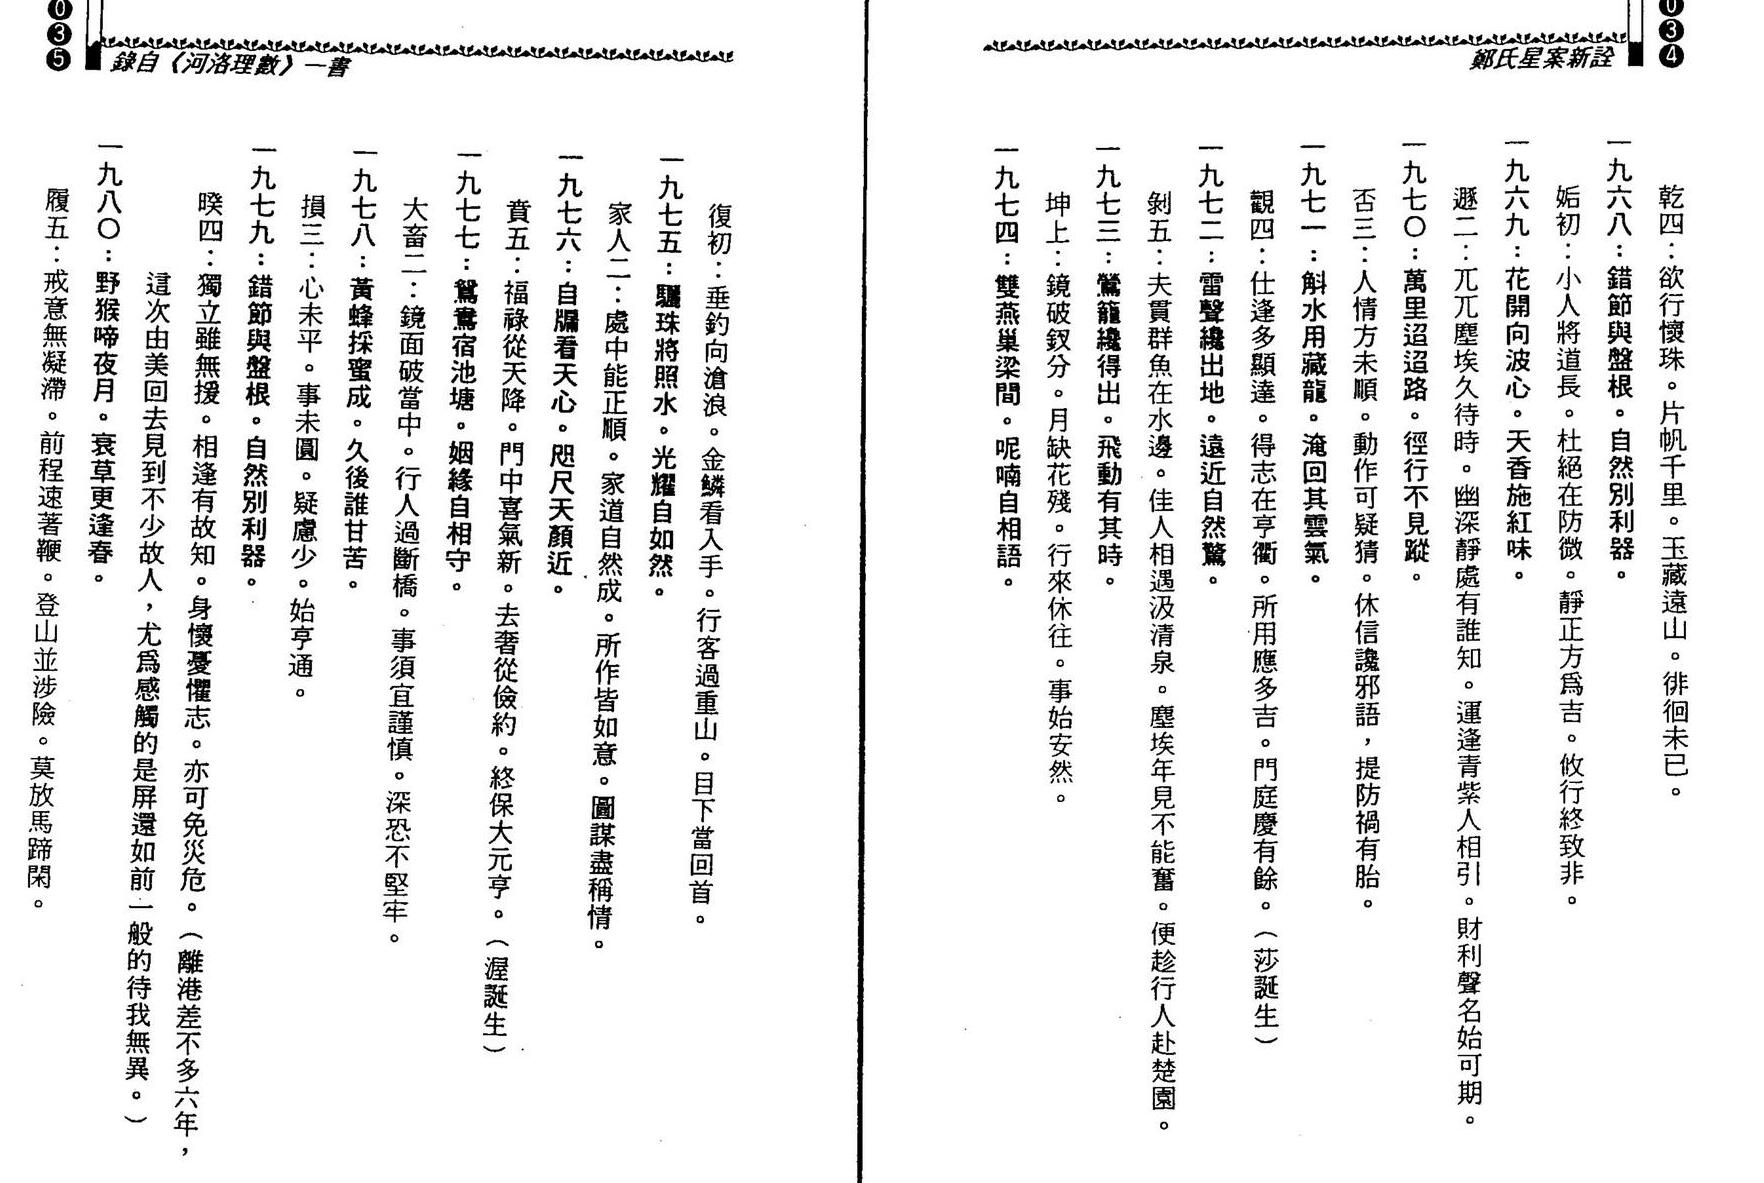 034
鄭氏星案新詮
乾四：欲行懷珠。片帆千里。玉藏遠山。徘徊未已。
一九六八：錯節與盤根。自然別利器。
姤初：小人將道長。杜絕在防微。靜正方爲吉。攸行終致非。
一九六九：花開向波心。天香施紅味。
遯二：兀兀塵埃久待時。幽深靜處有誰知。運逢青紫人相引。財利聲名始可期。
一九七〇：萬里迢迢路。徑行不見蹤。
否三：人情方未順。動作可疑猜。休信讒邪語，提防禍有胎。
一九七一：斛水用藏龍。淹回其雲氣。
觀四：仕逢多顯達。得志在亨衢。所用應多吉。門庭慶有餘。（莎誕生）
一九七二：雷聲纔出地。遠近自然驚。
剝五：夫貫群魚在水邊。佳人相遇汲清泉。塵埃年見不能奮。便趁行人赴楚園。
一九七三：鶯籠纔得出。飛動有其時。
坤上：鏡破釵分。月缺花殘。行來休往。事始安然。
一九七四：雙燕巢梁間。呢喃自相語。
035
錄自〈河洛理數〉一書
復初：垂釣向滄浪。金鱗看入手。行客過重山。目下當回首。
一九七五：驪珠將照水。光耀自如然。
家人二：處中能正順。家道自然成。所作皆如意。圖謀盡稱情。
一九七六：自牖看天心。咫尺天顏近。
賁五：福祿從天降。門中喜氣新。去奢從儉約。終保大元亨。（渥誕生）
一九七七：鴛鴦宿池塘。姻緣自相守。
大畜二：鏡面破當中。行人過斷橋。事須宜謹慎。深恐不堅牢。
一九七八：黃蜂採蜜成。久後誰甘苦。
損三：心未平。事未圓。疑慮少。始亨通。
一九七九：錯節與盤根。自然別利器。
睽四：獨立雖無援。相逢有故知。身懷憂懼志。亦可免災危。（離港差不多六年，
這次由美回去見到不少故人，尤爲感觸的是屏還如前一般的待我無異。）
一九八〇：野猴啼夜月。衰草更逢春。
履五：戒意無凝滯。前程速著鞭。登山並涉險。莫放馬蹄閑。